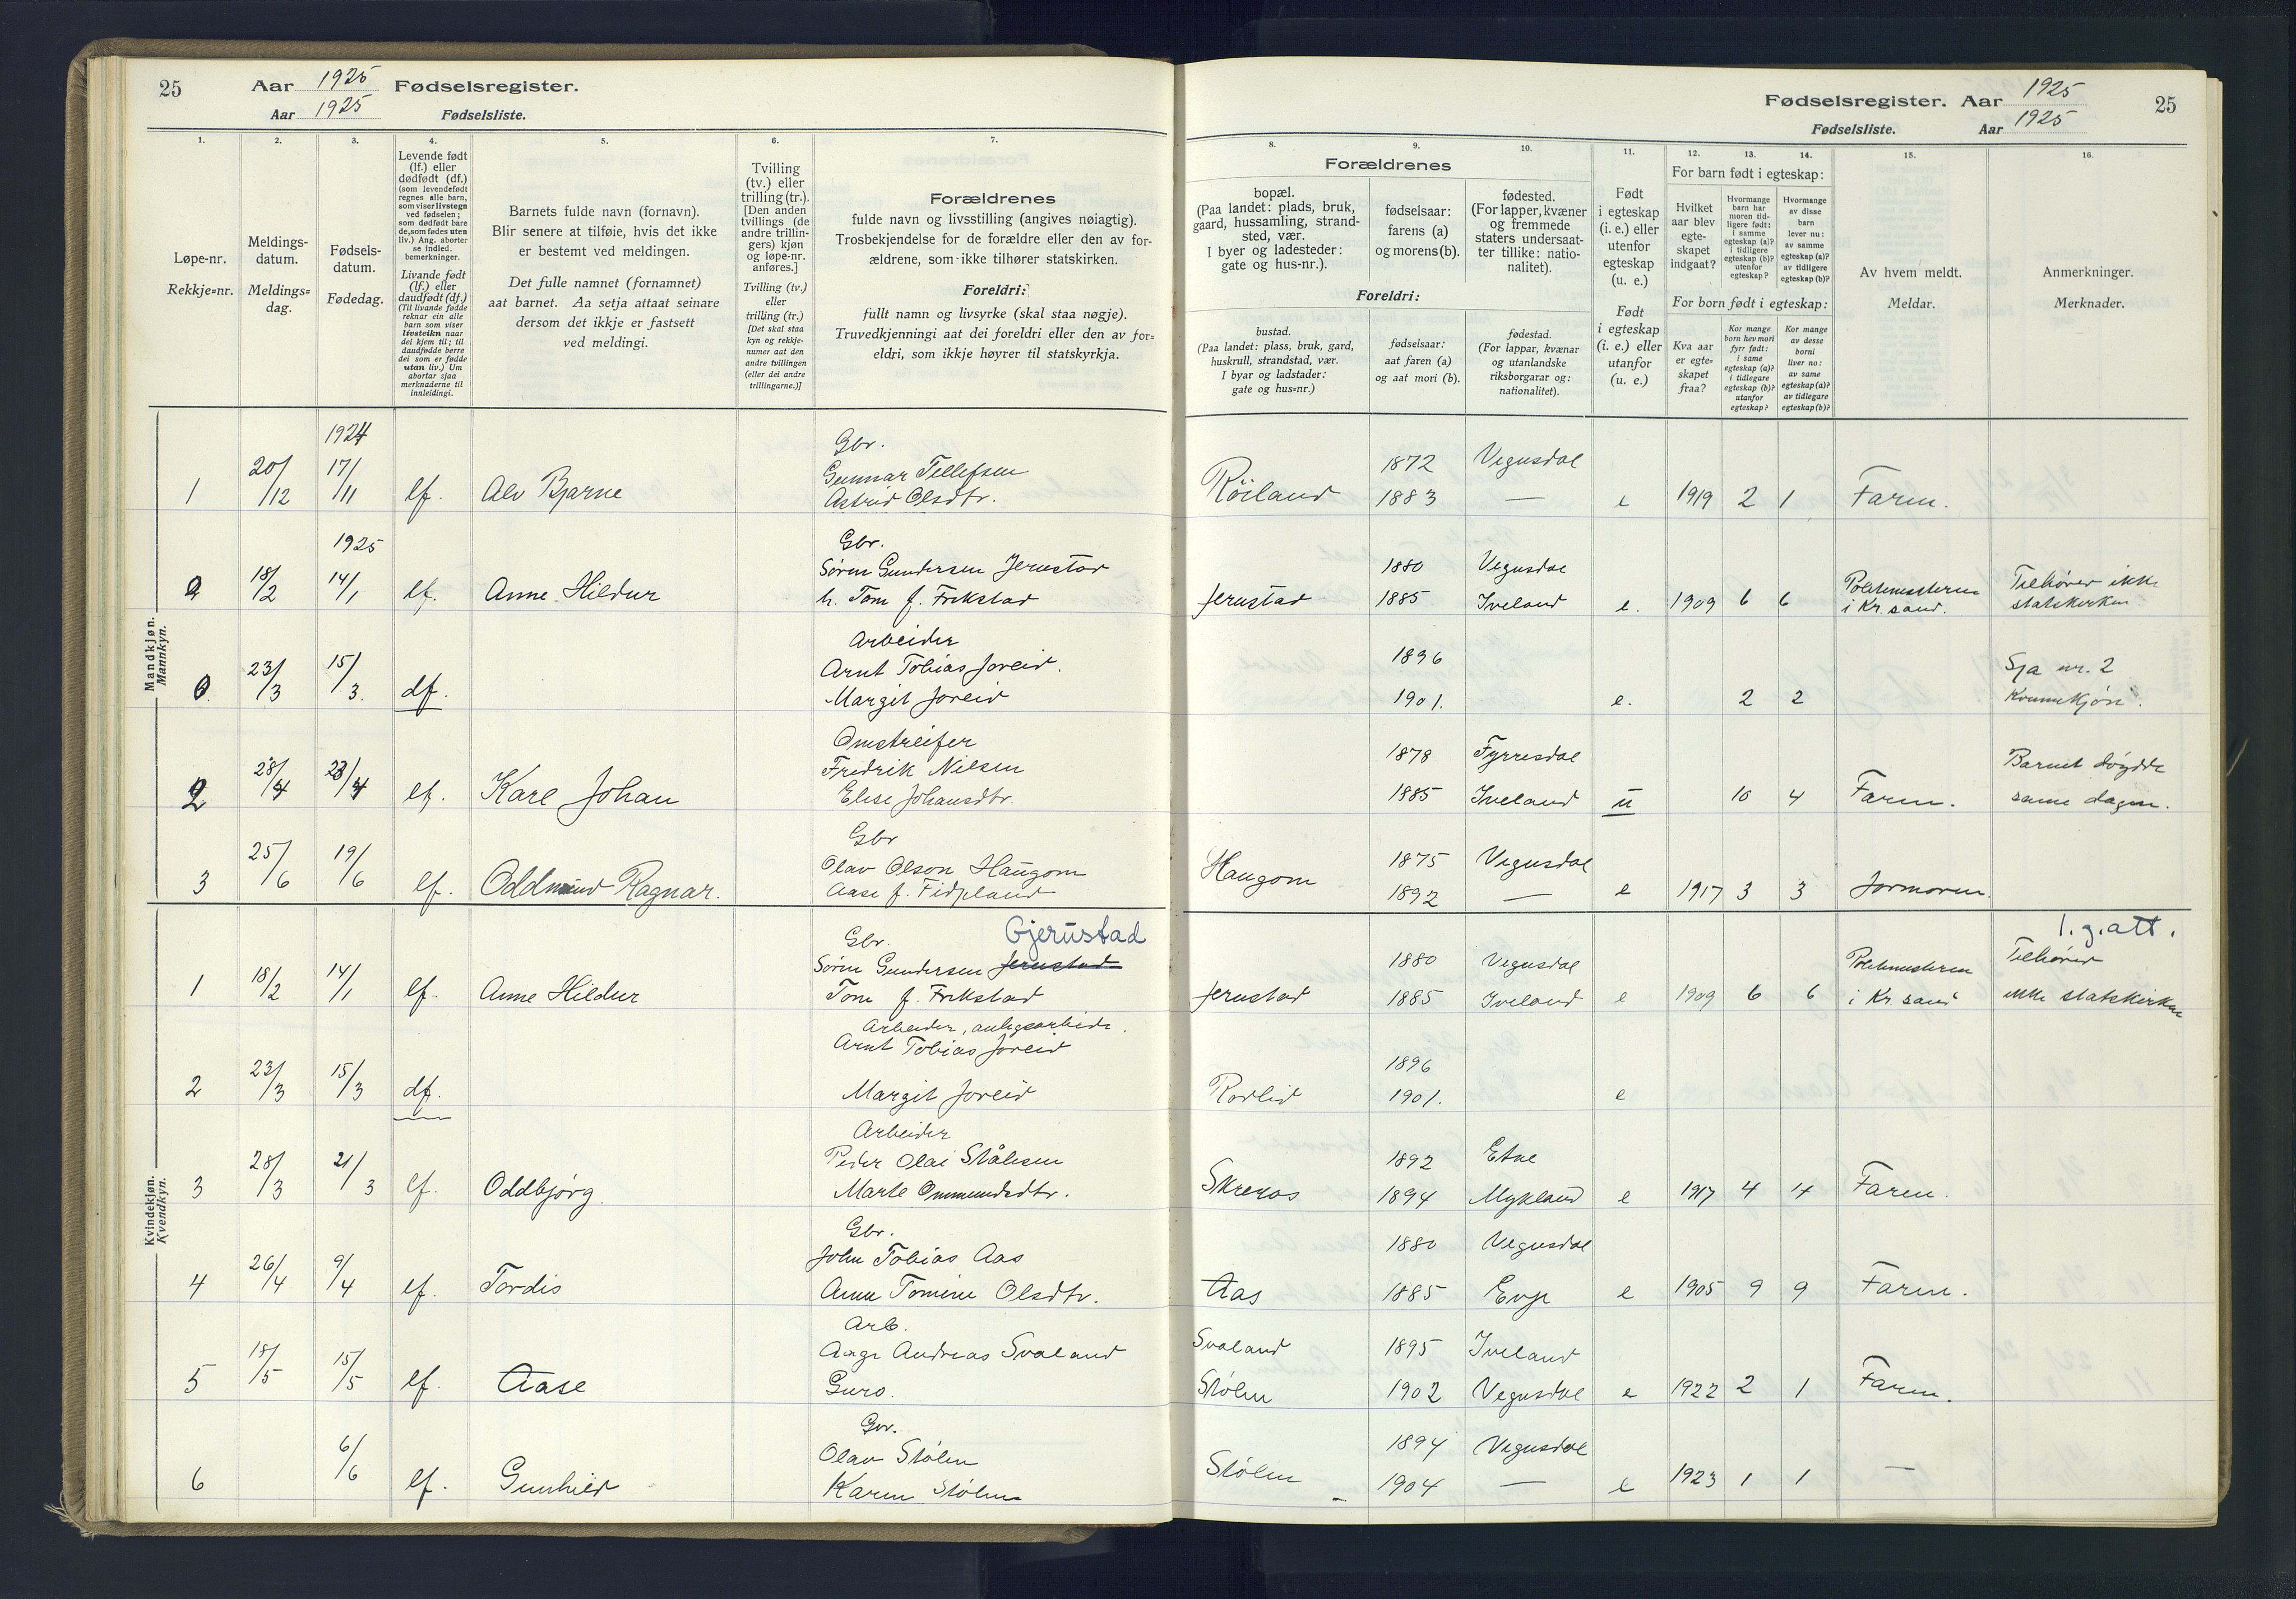 25
Aar 1925 Fødselsregister.
Aar 1925 Fødselsliste.
1.
Løpe-nr.
Rekkje=nr.
2.
Meldings-
datum.
Meldings=
dag.
3.
Fødsels-
datum.
Fødedag.
4.
Levende født
(lf.) eller
dødfødt (df.)
(som levendefødt
regnes alle barn,
som viser livstegn
ved fødselen;
som dødfødt bare
de, som fødes uten
liv.) Ang. aborter
se indled.
bemerkninger.
Livande født
(lf.) eller
daudfødt (df.)
(Til livande fødde
reknar ein alle
barn som viser
livsteikn naar
dei kjem til; til
daudfødde berre
dei som er fødde
utan liv.) Um
abortar sjaa
merknaderne til
innleidingi.
5.
Barnets fulde navn (fornavn).
Blir senere at tilføie, hvis det ikke
er bestemt ved meldingen.
Det fulle namnet (fornamnet)
aat barnet. Aa setja attaat seinare
dersom det ikkje er fastsett
ved meldingi.
6.
Tvilling
(tv.) eller
trilling (tr.).
[Den anden
tvillings (de
andre trillin-
gers) kjøn
og løpe-nr.
anføres.]
Tvilling (tv.)
eller
trilling (tr.)
[Det skal staa
kyn og rekkje-
numer aat den
andre tvillingen
(eller dei andre
trillingarne.)]
7.
Forældrenes
fulde navn og livsstilling (angives nøiagtig).
Trosbekjendelse for de forældre eller den av for-
ældrene, som ikke tilhører statskirken.
Foreldri:
fullt namn og livsyrke (skal staa nøgje).
Truvedkjenningi aat dei foreldri eller den av for=
eldri, som ikkje høyrer til statskyrkja.
Fødselsregister. Aar 1925
Fødselsliste. Aar 1925
25
Forældrenes
8.
bopæl.
(Paa landet: plads, bruk,
gaard, hussamling, strand-
sted, vær.
I byer og ladesteder:
gate og hus-nr.).
9.
fødselsaar:
farens (a)
og morens (b).
10.
fødested.
(For lapper, kvæner
og fremmede
staters undersaat-
ter tillike: natio-
nalitet).
Foreldri:
bustad.
(Paa landet: plass, bruk, gard,
huskrull, strandstad, vær.
I byar og ladstader:
gate og hus=nr.)
fødselsaar:
aat faren (a)
og aat mori (b).
fødestad.
(For lappar, kvænar
og utanlandske
riksborgarar og:
nationalitet).
11.
Født
i egteskap
(i. e.) eller
utenfor
egteskap
(u. e.)
Født
i egteskap
(i. e.) eller
utanfor
(u. e.)
12. 13. 14.
For barn født i egteskap:
Hvilket
aar blev
egte-
skapet
indgaat?
Hvormange
barn har
moren tid-
ligere født:
i samme
egteskap (a)?
i tidligere
egteskap (b)?
utenfor
egteskap?
Hvormange
av disse
barn
lever nu:
av samme
egteskap (a)?
av tidligere
egteskap (b)?
For born født i egteskap:
Kva aar
er egte=
skapet
fraa?
Kor mange
born hev mori
fyrr født:
i same
egteskap (a)?
i tidlegare
egteskap (b)?
utanfor
egteskap?
Kor mange
av desse
borni
liver no:
av same
egteskap (a)?
av tidlegare
egteskap (b)?
15.
Av hvem meldt.
Meldar.
16.
Anmerkninger.
Merknader.
Mandkjøn.
Mannkyn.
1924
Gbr.
1 20/12 17/11 lf. Alv Bjarne Gunnar Tellefsen 1872 Vegusdal
Astrid Olsdtr. Röiland 1883 — e 1919 2 1 Faren.
1925
Gbr.
18/2 14/1 lf. Anne Hildur Søren Gundersen Jerustad 1880 Vegusdal
h. Tom f. Frikstad Jerustad 1885 Iveland e. 1909 6 6 Politimesteren i Kr. sand. Tilhører ikke statskirken
Arbeider
0 23/3 15/3. df. Arnt Tobias Joreid. 1896
Margit Joreid 1901. e. 2 2 Sja nr. 2 Kvinnekjøn.
Omstreifer
2 28/4 23/4 lf. Kare Johan Fredrik Nilsen 1878 Fyrresdal
Elise Johansdtr. 1885 Iveland u 10 4 Faren. Barnet døydde same dagen.
Gbr
3 25/6 19/6 lf. Oddmund Ragnar. Olav Olson Haugom 1875 Vegusdal
Aase f. Fidjeland Haugom 1892 — e 1917 3 3 Jormoren.
Kvindekjøn.
Kvendkyn.
Gbr. Gjerustad 1. g. att.
1 18/2 14/1 lf. Anne Hildur Søren Gundersen Jerustad 1880 Vegusdal
Tom f. Frikstad Jerustad 1885 Iveland e 1909 6 6 Politimesteren i Kr. sand Tilhører ikke statskirken
Arbeider, anlegsarbeide.
2 23/3 15/3 df. Arnt Tobias Joreid 1896
Margit Joreid Rovlid 1901. e
Arbeider
3 28/3 21/3 lf. Oddbjörg. Peder Olai Ståhesen 1892 Etne
Marte Ommundsdtr. Skreros 1894 Mykland e 1917 4 4 Faren.
Gbr.
4 26/4 9/4 lf. Tordis John Tobias Aas 1880 Vegusdal
Anne Tomine Olsdtr. Aas 1885 Evje e 1905 9 9 Faren.
Arb.
5 18/5 15/5 lf. Aase Aage Andreas Svaland Svaland 1895 Iveland
Guro. Stølen 1902 Vegusdal e 1922 2 1 Faren.
Gbr.
6 6/6 lf. Gunhild Olav Stølen 1894 Vegusdal
Karen Stølen Stølen 1904 — e 1923 1 1 —